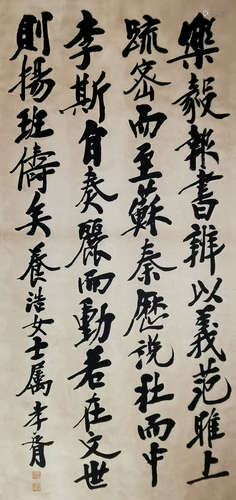 樂毅報書辨以義范雎上
疏密而至蘇秦歷說壯而中
李斯自奏麗而動若在文世
則揚班儔矣 養浩女士屬 孝胥